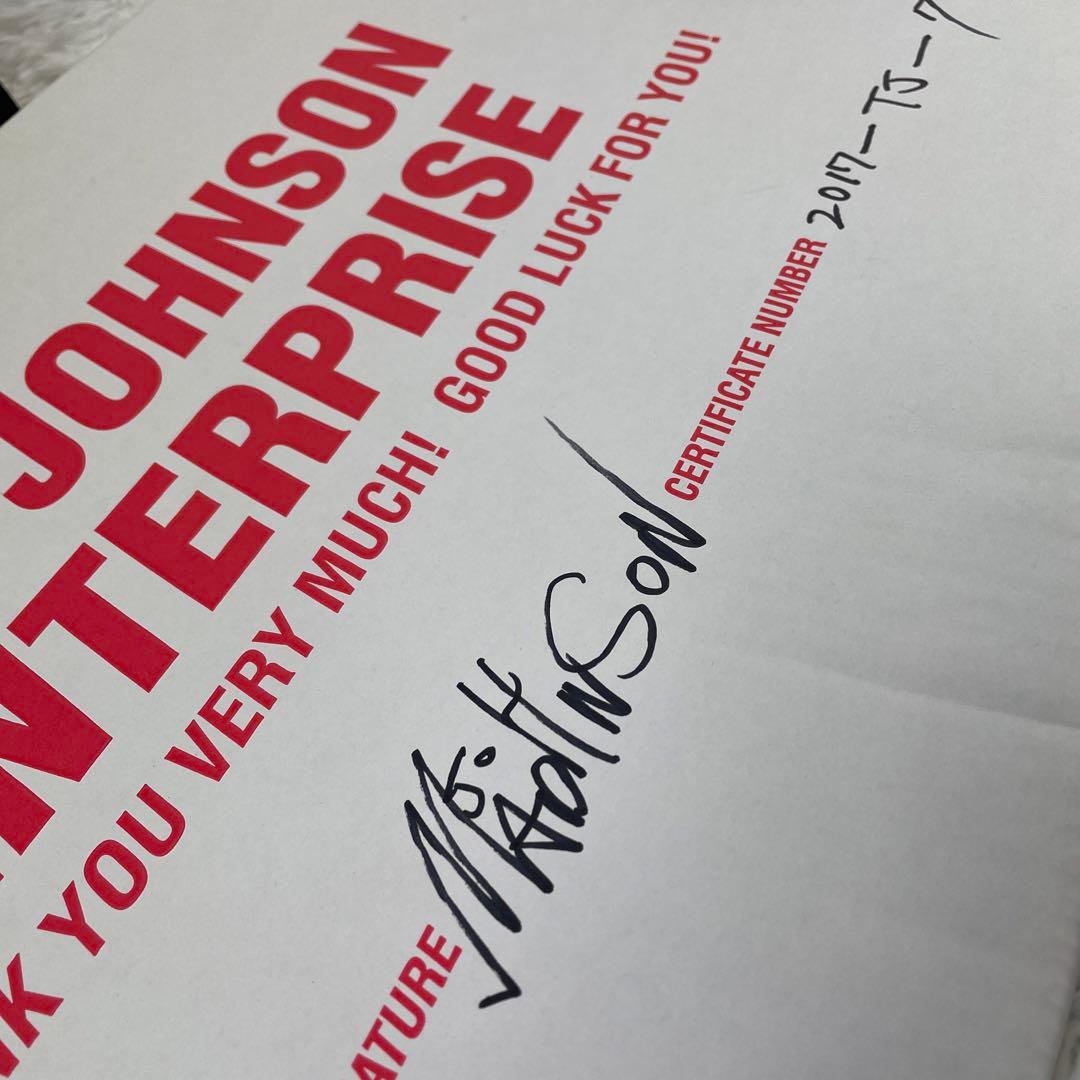 JOHNSON
NTERPRISE
NK YOU VERY MUCH! GOOD LUCK FOR YOU!
ATURE CERTIFICATE NUMBER 2017-TJ-7